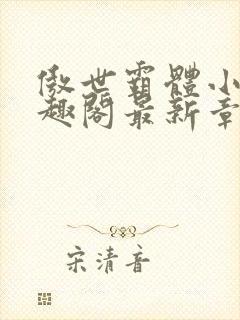 傲世霸體小
趣閣最新章
宋清音